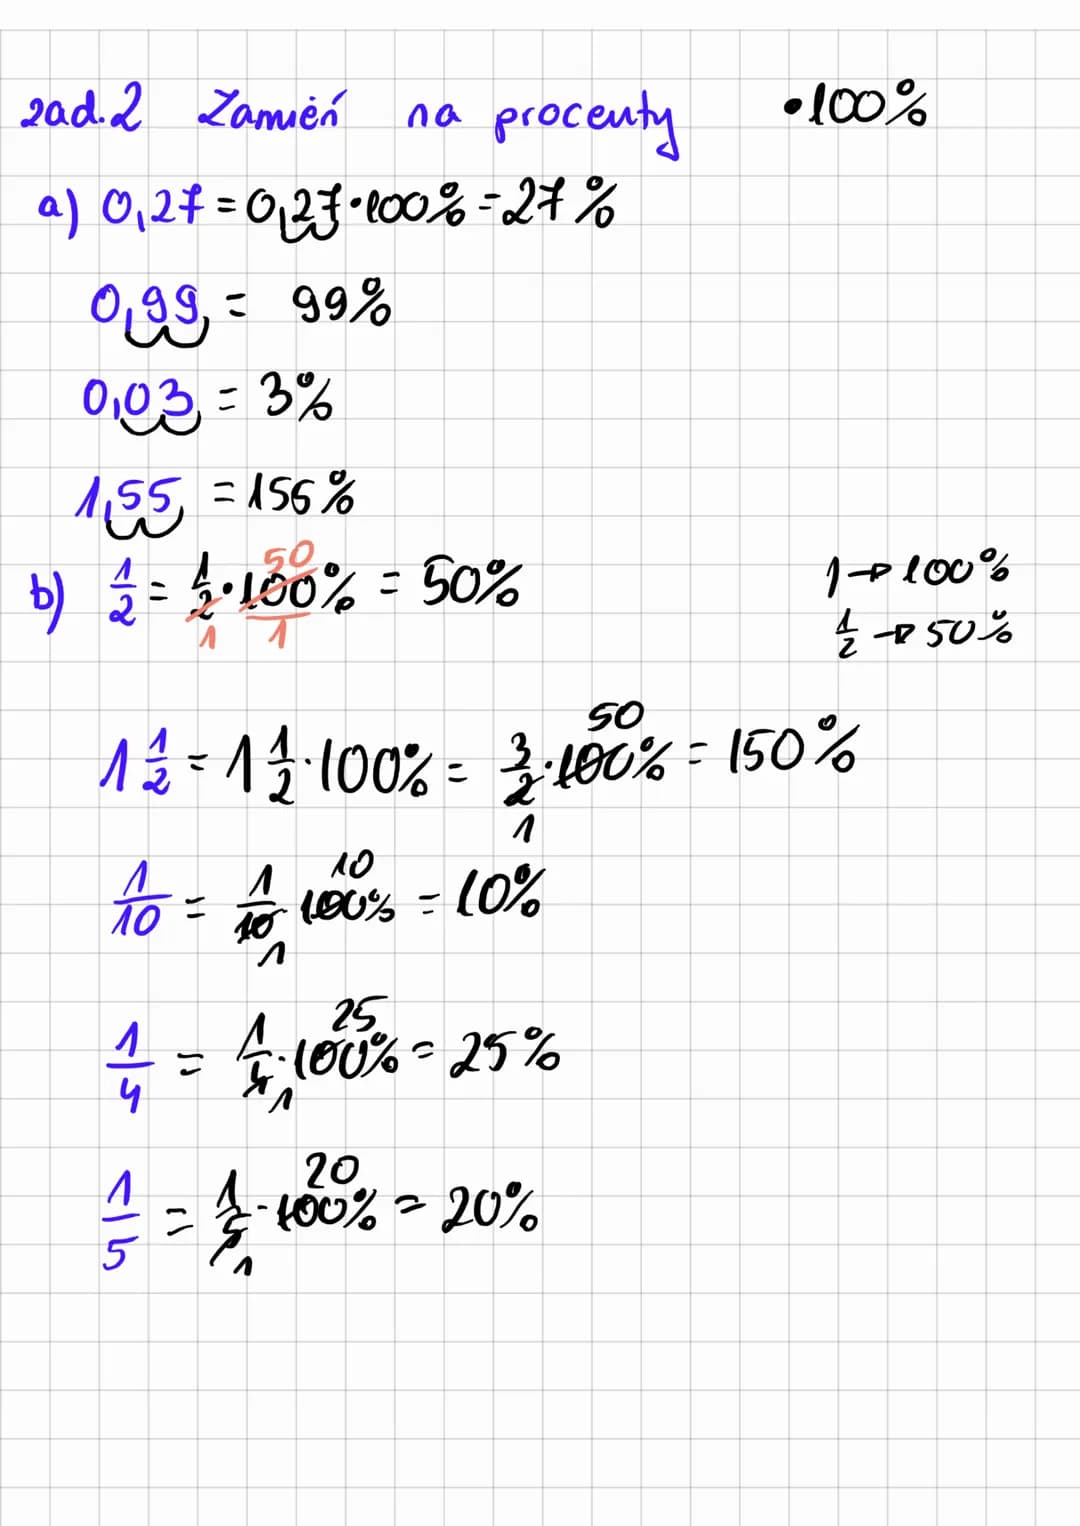 zad.2 Zamień na procenty •100%
a) 0,27 = 0,27 • 100% = 27%
0,99 = 99%
0,03 = 3%
1,55 = 156%
b) 1/2 = 1/2 • 100% = 50%
50
1 1
1 → 100%
1/2 → 50%
1 1/2 = 1 1/2 · 100% = 3/2 · 100% = 150%
50
1
1/10 = 1/10 · 100% = 10%
10
1
1/4 = 1/4 · 100% = 25%
25
1
1/5 = 1/5 · 100% = 20%
20
1